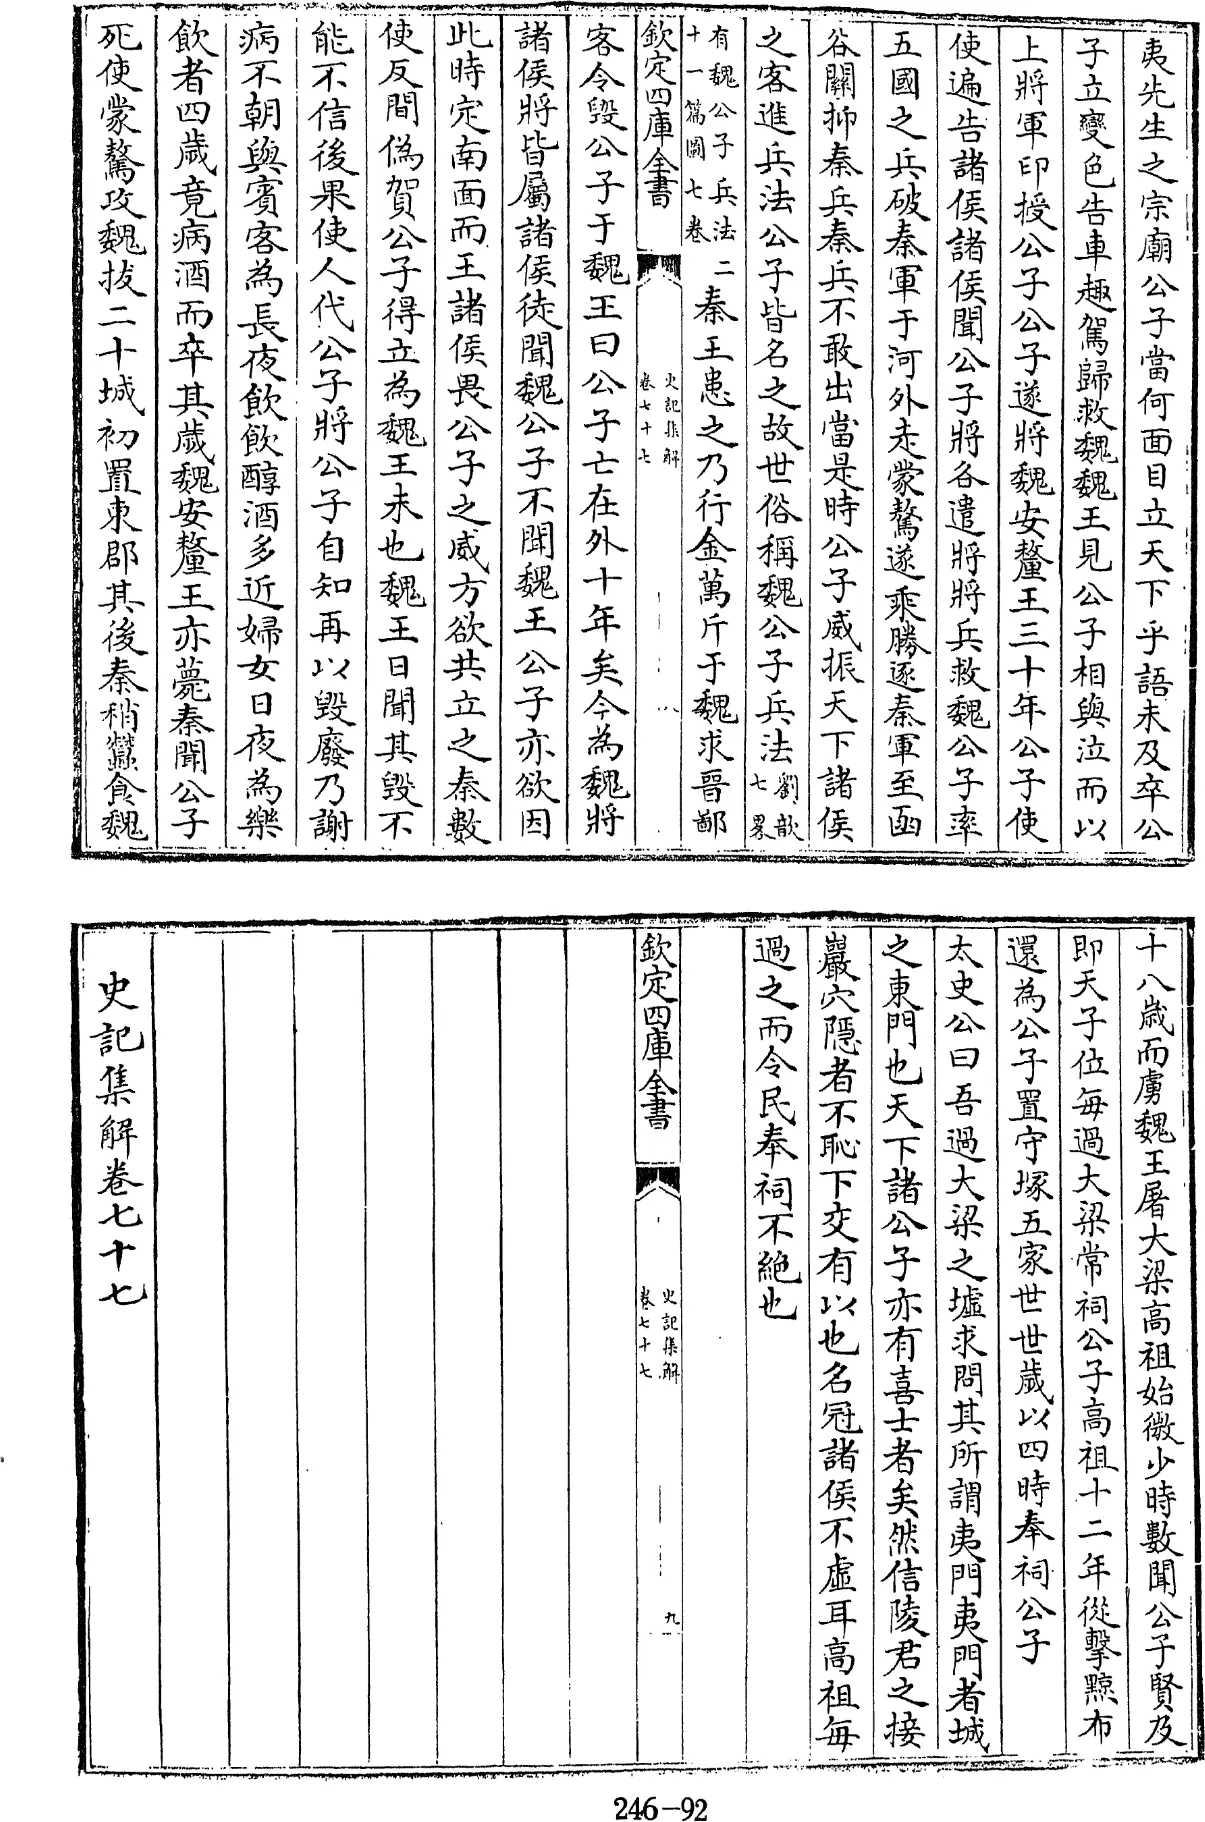 夷先生之宗廟公子當何面目立天下乎語未及卒公
子立變色告車趣駕歸救魏魏王見公子相與泣而以
上將軍印授公子公子遂將魏安釐王三十年公子使
使遍告諸侯諸侯聞公子將各遣將將兵救魏公子率
五國之兵破秦軍于河外走蒙驁遂乘勝逐秦軍至函
谷關抑秦兵秦兵不敢出當是時公子威振天下諸侯
之客進兵法公子皆名之故世俗稱魏公子兵法劉歆七畧
有魏公子兵法二十一篇圖七卷秦王患之乃行金萬斤于魏求晉鄙
欽定四庫全書
史記集解
卷七十七
八
客令毀公子于魏王曰公子亡在外十年矣今為魏將
諸侯將皆屬諸侯徒聞魏公子不聞魏王公子亦欲因
此時定南面而王諸侯畏公子之威方欲共立之秦數
使反間偽賀公子得立為魏王未也魏王日聞其毀不
能不信後果使人代公子將公子自知再以毀廢乃謝
病不朝與賓客為長夜飲飲醇酒多近婦女日夜為樂
飲者四歲竟病酒而卒其歲魏安釐王亦薨秦聞公子
死使蒙驁攻魏拔二十城初置東郡其後秦稍蠶食魏
十八歲而虜魏王屠大梁高祖始微少時數聞公子賢及
即天子位每過大梁常祠公子高祖十二年從擊黥布
還為公子置守塚五家世世歲以四時奉祠公子
太史公曰吾過大梁之墟求問其所謂夷門夷門者城
之東門也天下諸公子亦有喜士者矣然信陵君之接
巖穴隱者不恥下交有以也名冠諸侯不虛耳高祖每
過之而令民奉祠不絕也
欽定四庫全書
史記集解
卷七十七
九
史記集解卷七十七
246-92